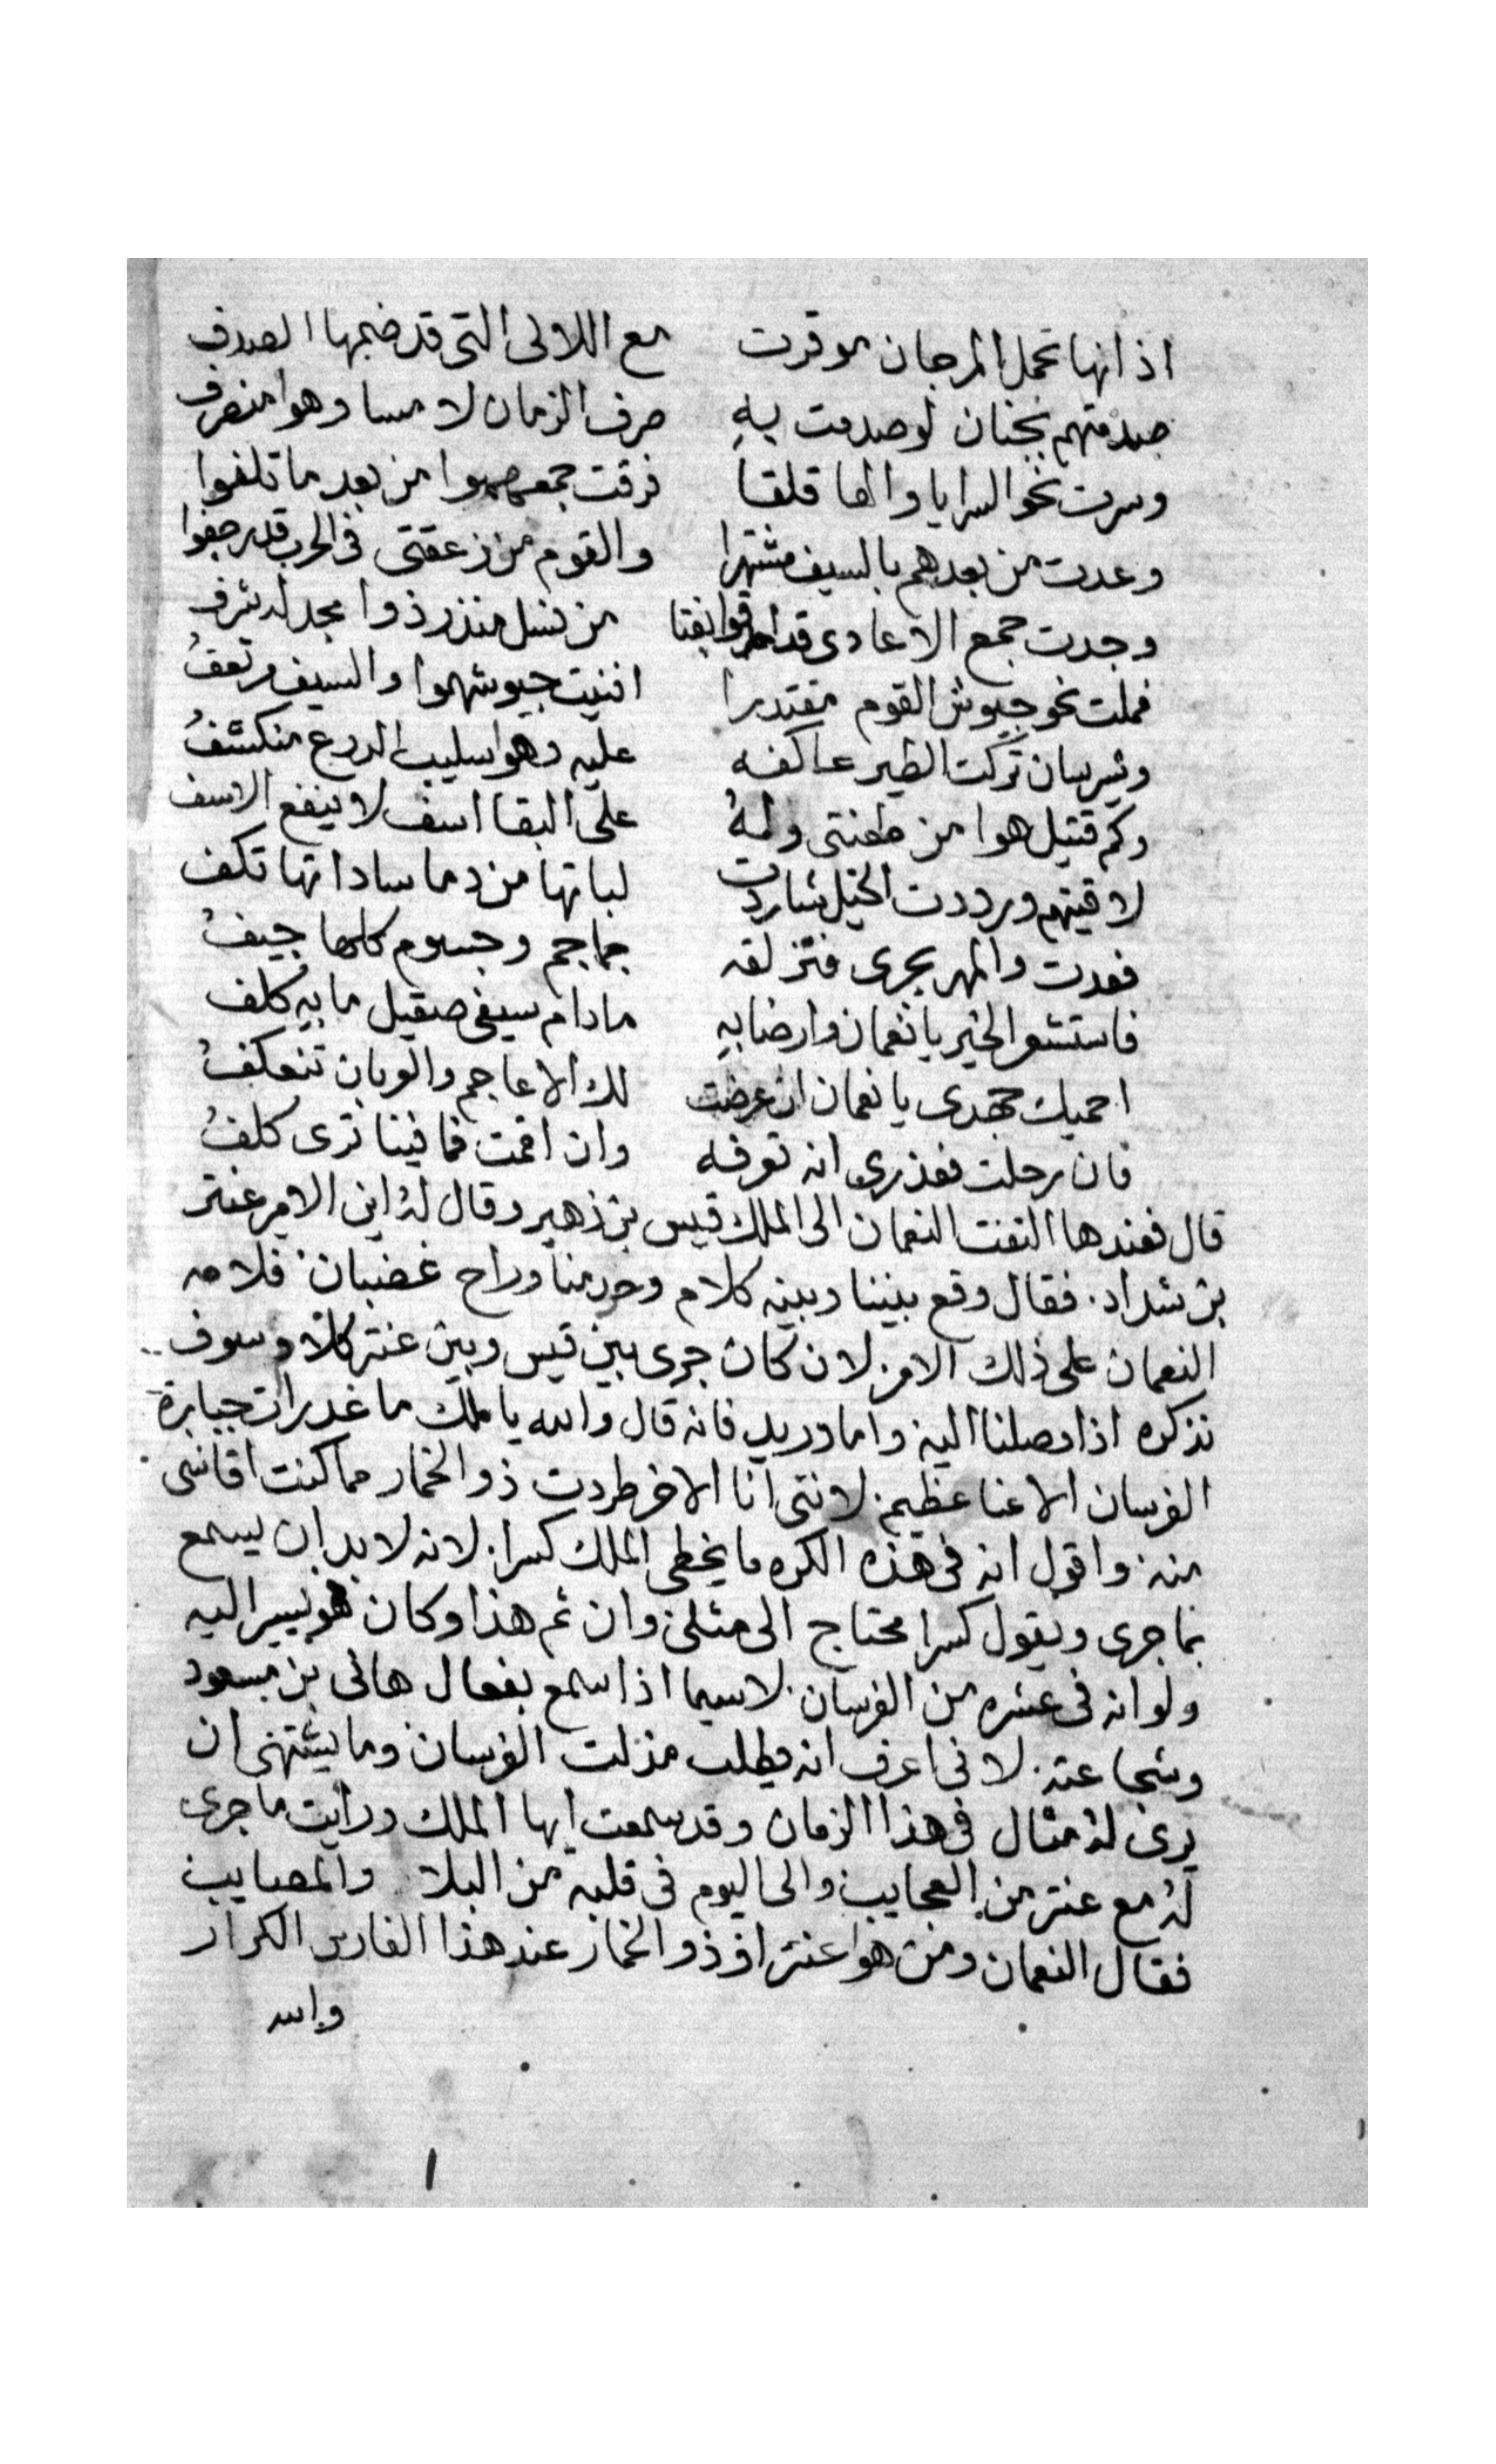 اذ انها تحمل المرجان موقرت مع اللالى التى قد ضمها الصدف
صدمتهم بجنان لو صدمت به صرف الزمان لا مسا وهوا منصرف
وسرت نحو السرايا والها قلقا فرقت جمعهموا من بعد ما تلفوا
وعدت من بعدهم بالسيف مشتهرا والقوم من زعقتى فى الحرب قد رجفوا
وجدت جمع الاعادى قد من نسل منذر ذوا مجد له شرف
فملت نحو جيوش القوم مقتدرا افنيت جيوشهموا والسيف مرتعفُ
وشيرسان تركت الطير عاكفه عليه وهوا سليب الدرع منكشفُ
وكم قتيل هوا من طعنتى ولهُ على البقا اسف لا ينفع الاسف
لاقيتهم ورددت الخيل شاردت لباتها من دما ساداتها تكف
فعدت والمهر يجرى فتزلقه جماجم وجسوم كلها جيفُ
فاستشعر الخير يا نعمان وارضا به مادام سيفى صقيل ما به كلف
احميك جهدى يا نعمان ان عرضت لك الاعاجم والعربان تنعكفُ
فان رحلت فعذرى انه تعرفه وان اقمت فما فينا ترى كلفُ
قال فعندها التفت النعمان الى الملك قيس بن زهير وقال لهُ اين الامير عنتر
بن شداد. فقال وقع بيننا وبينه كلام وحرد منا وراح غضبان. فلامه
النعمان على ذلك الامر. لان كان جرى بين قيس وبين عنتر كلام وسوف
نذكره اذا وصلنا اليه واما دريد فانه قال والله يا ملك ما غدرات جبابرة
الفرسان الا عنا عظيم. لانتى انا الاخر طردت ذو الخمار مما كنت اقاسى
منه. واقول انه فى هذه الكره ما يخطى الملك كسرا. لانه لا بد ان يسمع
بما جرى ويقول كسرا محتاج الى مثلى وان تم هذا وكان هو يسير اليه
ولو انه فى عشره من الفرسان. لاسيما اذا سمع بفعال هانى بن مسعود
وشجاعته. لانى اعرف انه يطلب منزلت الفرسان وما يشتهى ان
يرى لهُ مثال فى هذا الزمان وقد سمعت ايها الملك ورايت ما جرى
لهُ مع عنتر من العجايب والى اليوم فى قلبه من البلا والمصايب
فقال النعمان ومن هوا عنتر او ذو الخمار عند هذا الفارس الكرار
والله